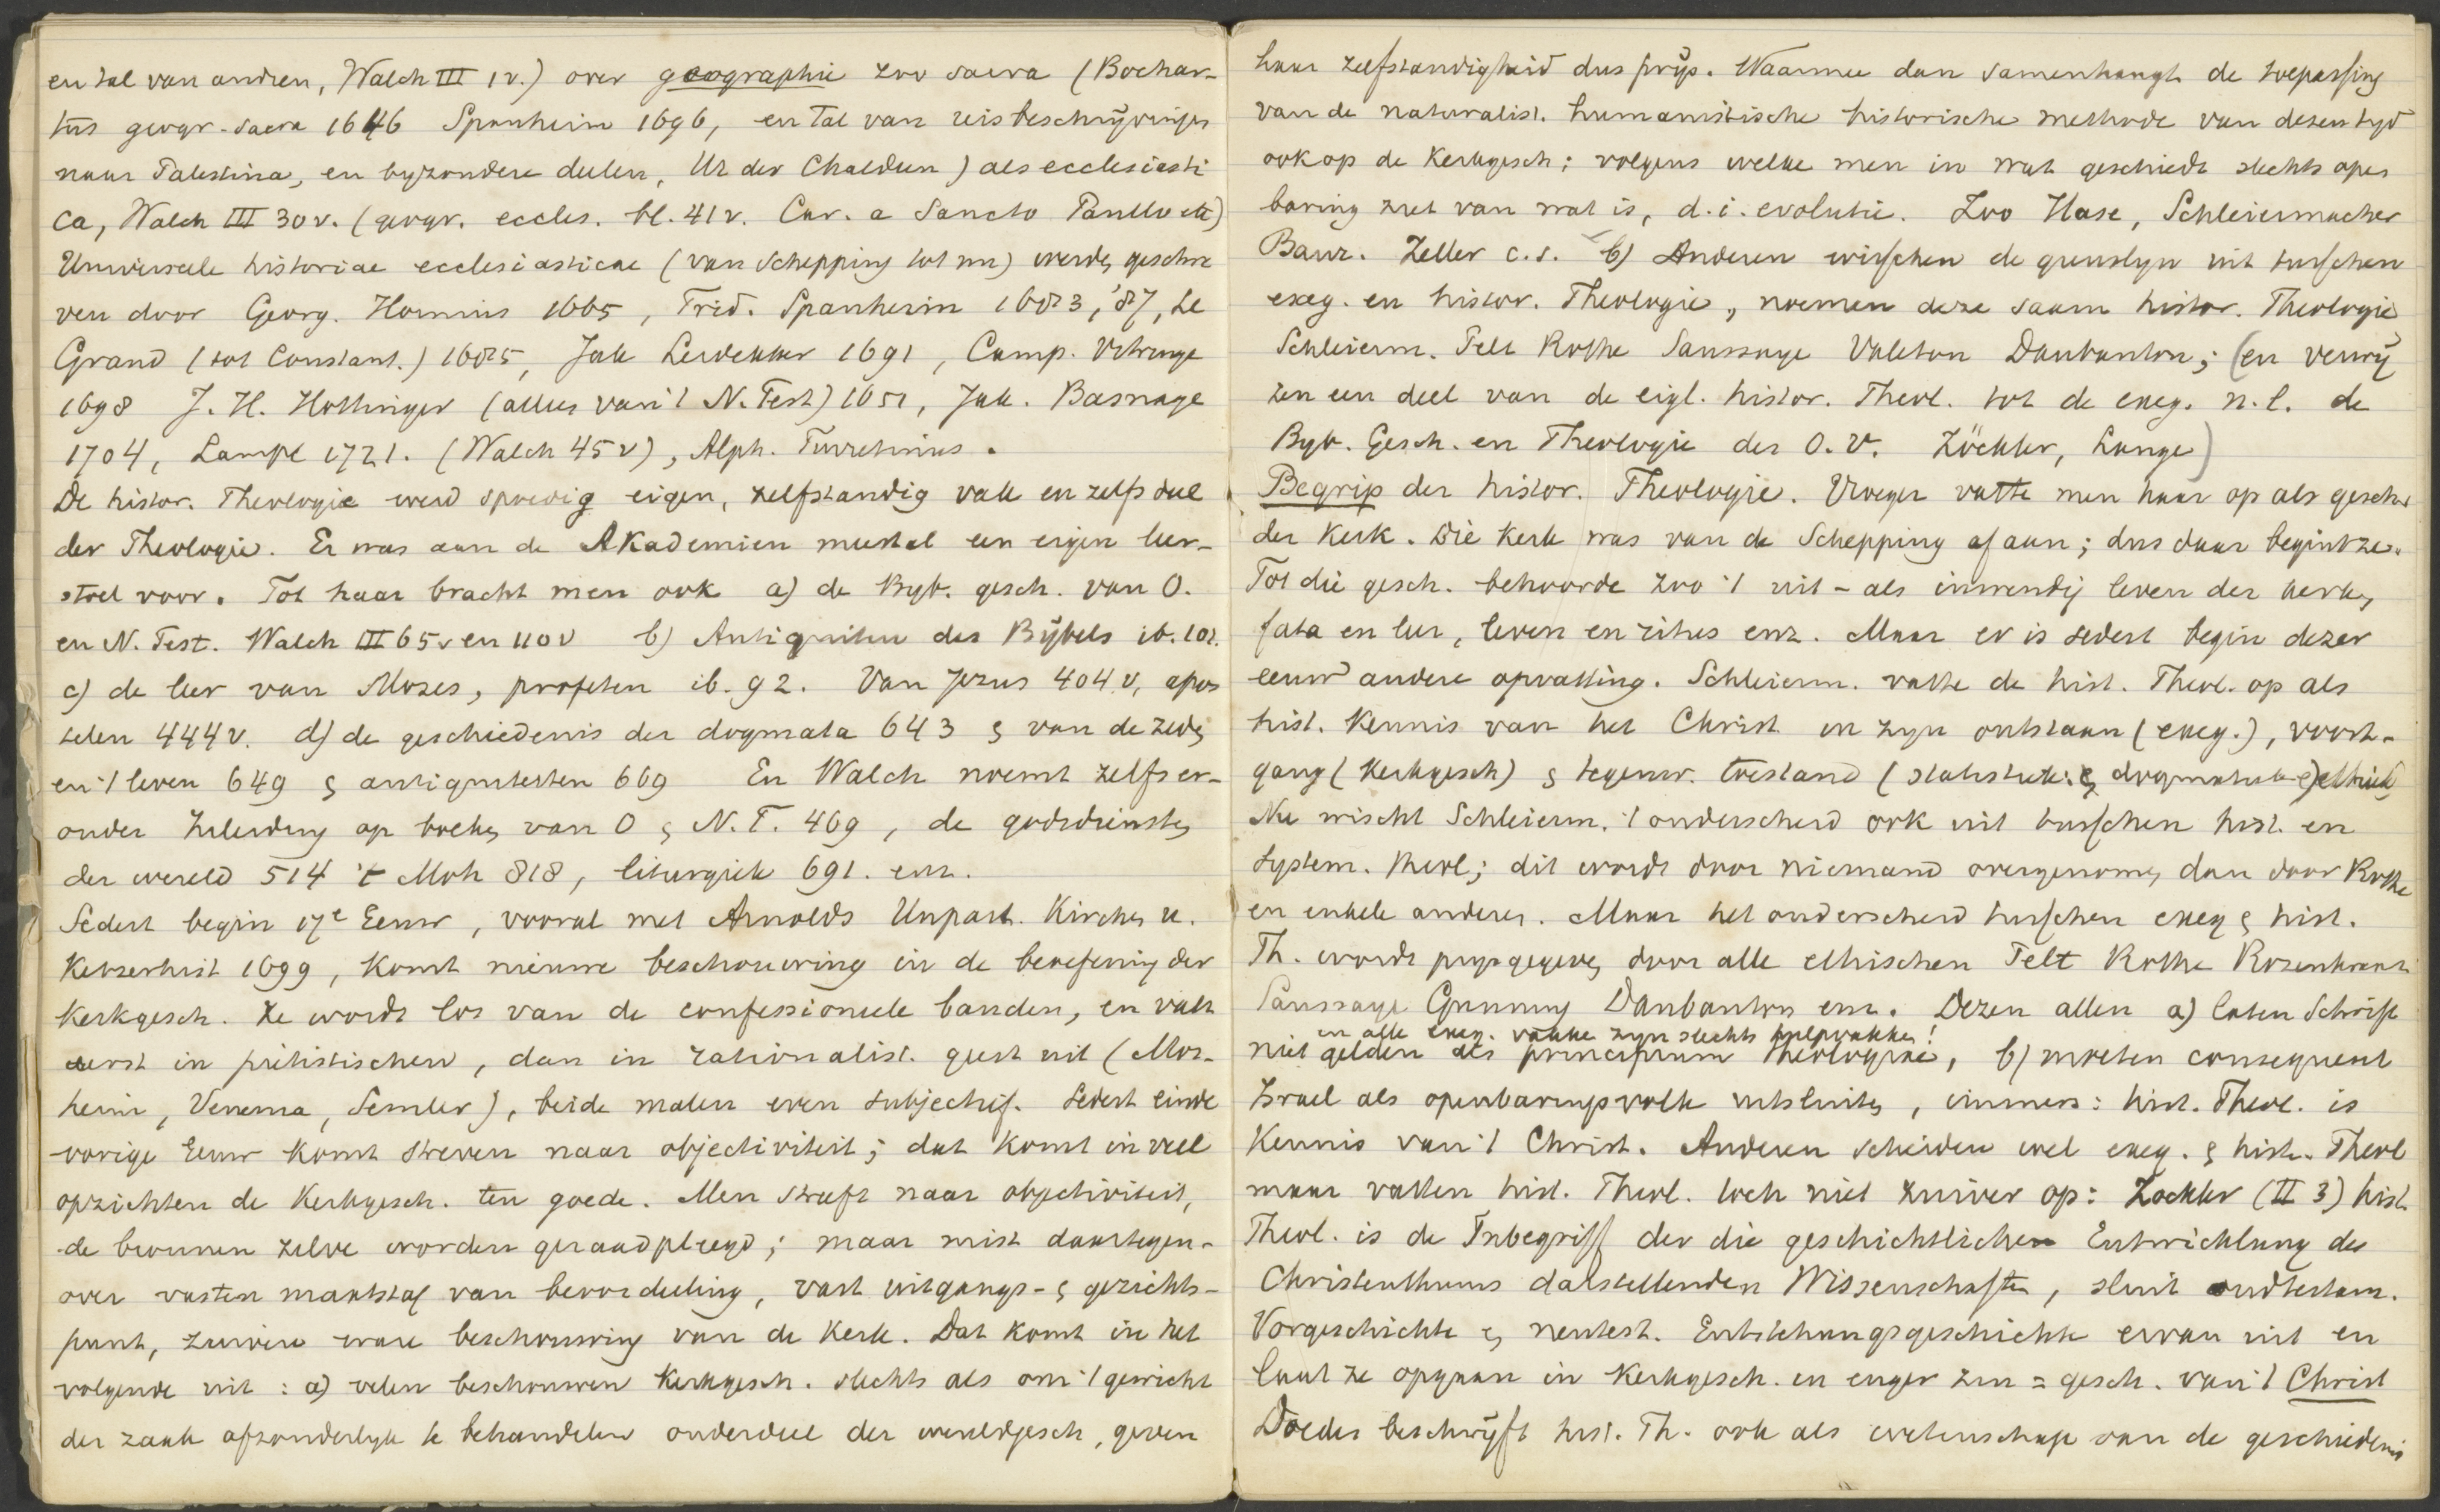 en tal van andren, Walch III 1v.) over geographie zoo sacra (Bochar-
tus geogr. sacra 1646 Spanheim 1696, en tal van reisbeschrijvingen
naar Palestina, en byzondere deelen, Ur der Chaldeen) als ecclesiasti
ca, Walch III 30v. (geogr. eccles. bl. 41v. Car. a Sancto Paullo etc)
Universeele historiae ecclesiasticae (van schepping tot nu) werden geschre
ven door Georg. Hornius 1665, Frid. Spanheim 1683, '87, Le
Grand (tot Constant.) 1685, Jak Leidekker 1691, Camp. Vitringa
1698 J. H. Hottinger (alles van 't N. Test) 1651, Jak. Basnage
1704, Lampe 1721. (Walch 45v), Alph. Turretinus.
De histor. Theologie werd spoedig eigen, zelfstandig vak en zelfs deel
der Theologie. Er was aan de Akademien meestal een eigen leer-
stoel voor. Tot haar bracht men ook a) de Byb. gesch. van O.
en N. Test. Walch III 65v en 110v b) Antiquiteiten des Bijbels ib. 102.
c) de leer van Mozes, profeten ib. 92. Van Jezus 404v, apos
telen 444v. d) de geschiedenis der dogmata 643 & van de zeden
en 't leven 649 & antiquiteiten 669 En Walch noemt zelfs er-
onder Inleiding op boeken van O & N. T. 469, de godsdiensten
der wereld 514 't Moh 818, liturgiek 691. enz.
Sedert begin 17e Eeuw, vooral met Arnolds Unpart. Kirchen u.
Ketzerhist 1699, komt nieuwe beschouwing in de beoefening der
Kerkgesch. Ze wordt los van de confessioneele banden, en valt
eerst in piëtistischen, dan in rationalist. geest uit (Mos-
heim, Venema, Semler), beide malen even subjectief. Sedert einde
vorige Eeuw komt streven naar objectiviteit; dat komt in veel
opzichten de Kerkgesch. ten goede. Men streeft naar objectiviteit,
de bronnen zelve worden geraadpleegd; maar mist daartegen-
over vasten maatstaf van beoordeeling, vast uitgangs- & gezichts-
punt, zuivere ware beschouwing van de Kerk. Dat komt in het
volgende uit: a) velen beschouwen Kerkgesch. slechts als om 't gewicht
der zaak afzonderlyk te behandelen onderdeel der wereldgesch, geven
haar zelfstandigheid dus prijs. Waarmee dan samenhangt de toepassing
van de naturalist. humanistische historische methode van dezen tyd
ook op de Kerkgesch; volgens welke men in wat geschiedt slechts open
baring ziet van wat is, d.i. evolutie. Zoo Hase, Schleiermacher
Baur. Zeller c.s. b) Anderen wisschen de grenslyn uit tusschen
exeg. en histor. Theologie, noemen deze saam histor. Theologie
Schleierm. Pelt Rothe Saussaye Valeton Daubanton; (en verwij
zen een deel van de eigl. histor. Theol. tot de exeg. n.l. de
Byb. Gesch. en Theologie des O. V. Zöckler, Lange)
Begrip der histor. Theologie. Vroeger vatte men haar op als gesch
der Kerk. Die Kerk was van de Schepping af aan; dus daar begint ze.
Tot die gesch. behoorde zoo 't uit- als inwendig leven der kerk,
fata en leer, leven en ritus enz. Maar er is sedert begin dezer
eeuw andere opvatting. Schleierm. vatte de hist. Theol. op als
hist. Kennis van het Christ in zyn ontstaan (exeg.), voort-
gang (Kerkgesch) & tegenw. toestand (statistiek & dogmatiek & ethiek)
Nu wischt Schleierm. 't onderscheid ook uit tusschen hist. en
system. theol; dit wordt door niemand overgenomen dan door Rothe
en enkele anderen. Maar het onderscheid tusschen exeg & hist.
Th. wordt prijsgegeven door alle ethischen Pelt Rothe Rosenkranz
Saussaye Gunning Daubanton enz. Dezen allen a) laten Schrift
en alle exeg. vakken zyn slechts hulpvakken!
niet gelden als principium theologiae, b) moeten consequent
Israel als openbaringsvolk uitsluiten, immers: hist. Theol. is
Kennis van 't Christ. Anderen scheiden wel exeg. & hist. Theol
maar vatten hist. Theol. toch niet zuiver op: Zockler (II 3) hist
Theol. is de Inbegriff der die geschichtlichen Entwicklung des
Christenthums darstellenden Wissenschaften, sluit oudtestam.
Vorgeschichte & neutest. Entstehungsgeschichte ervan uit en
laat ze opgaan in Kerkgesch. in enger zin = gesch. van 't Christ
Doedes beschrijft hist. Th. ook als wetenschap van de geschiedenis